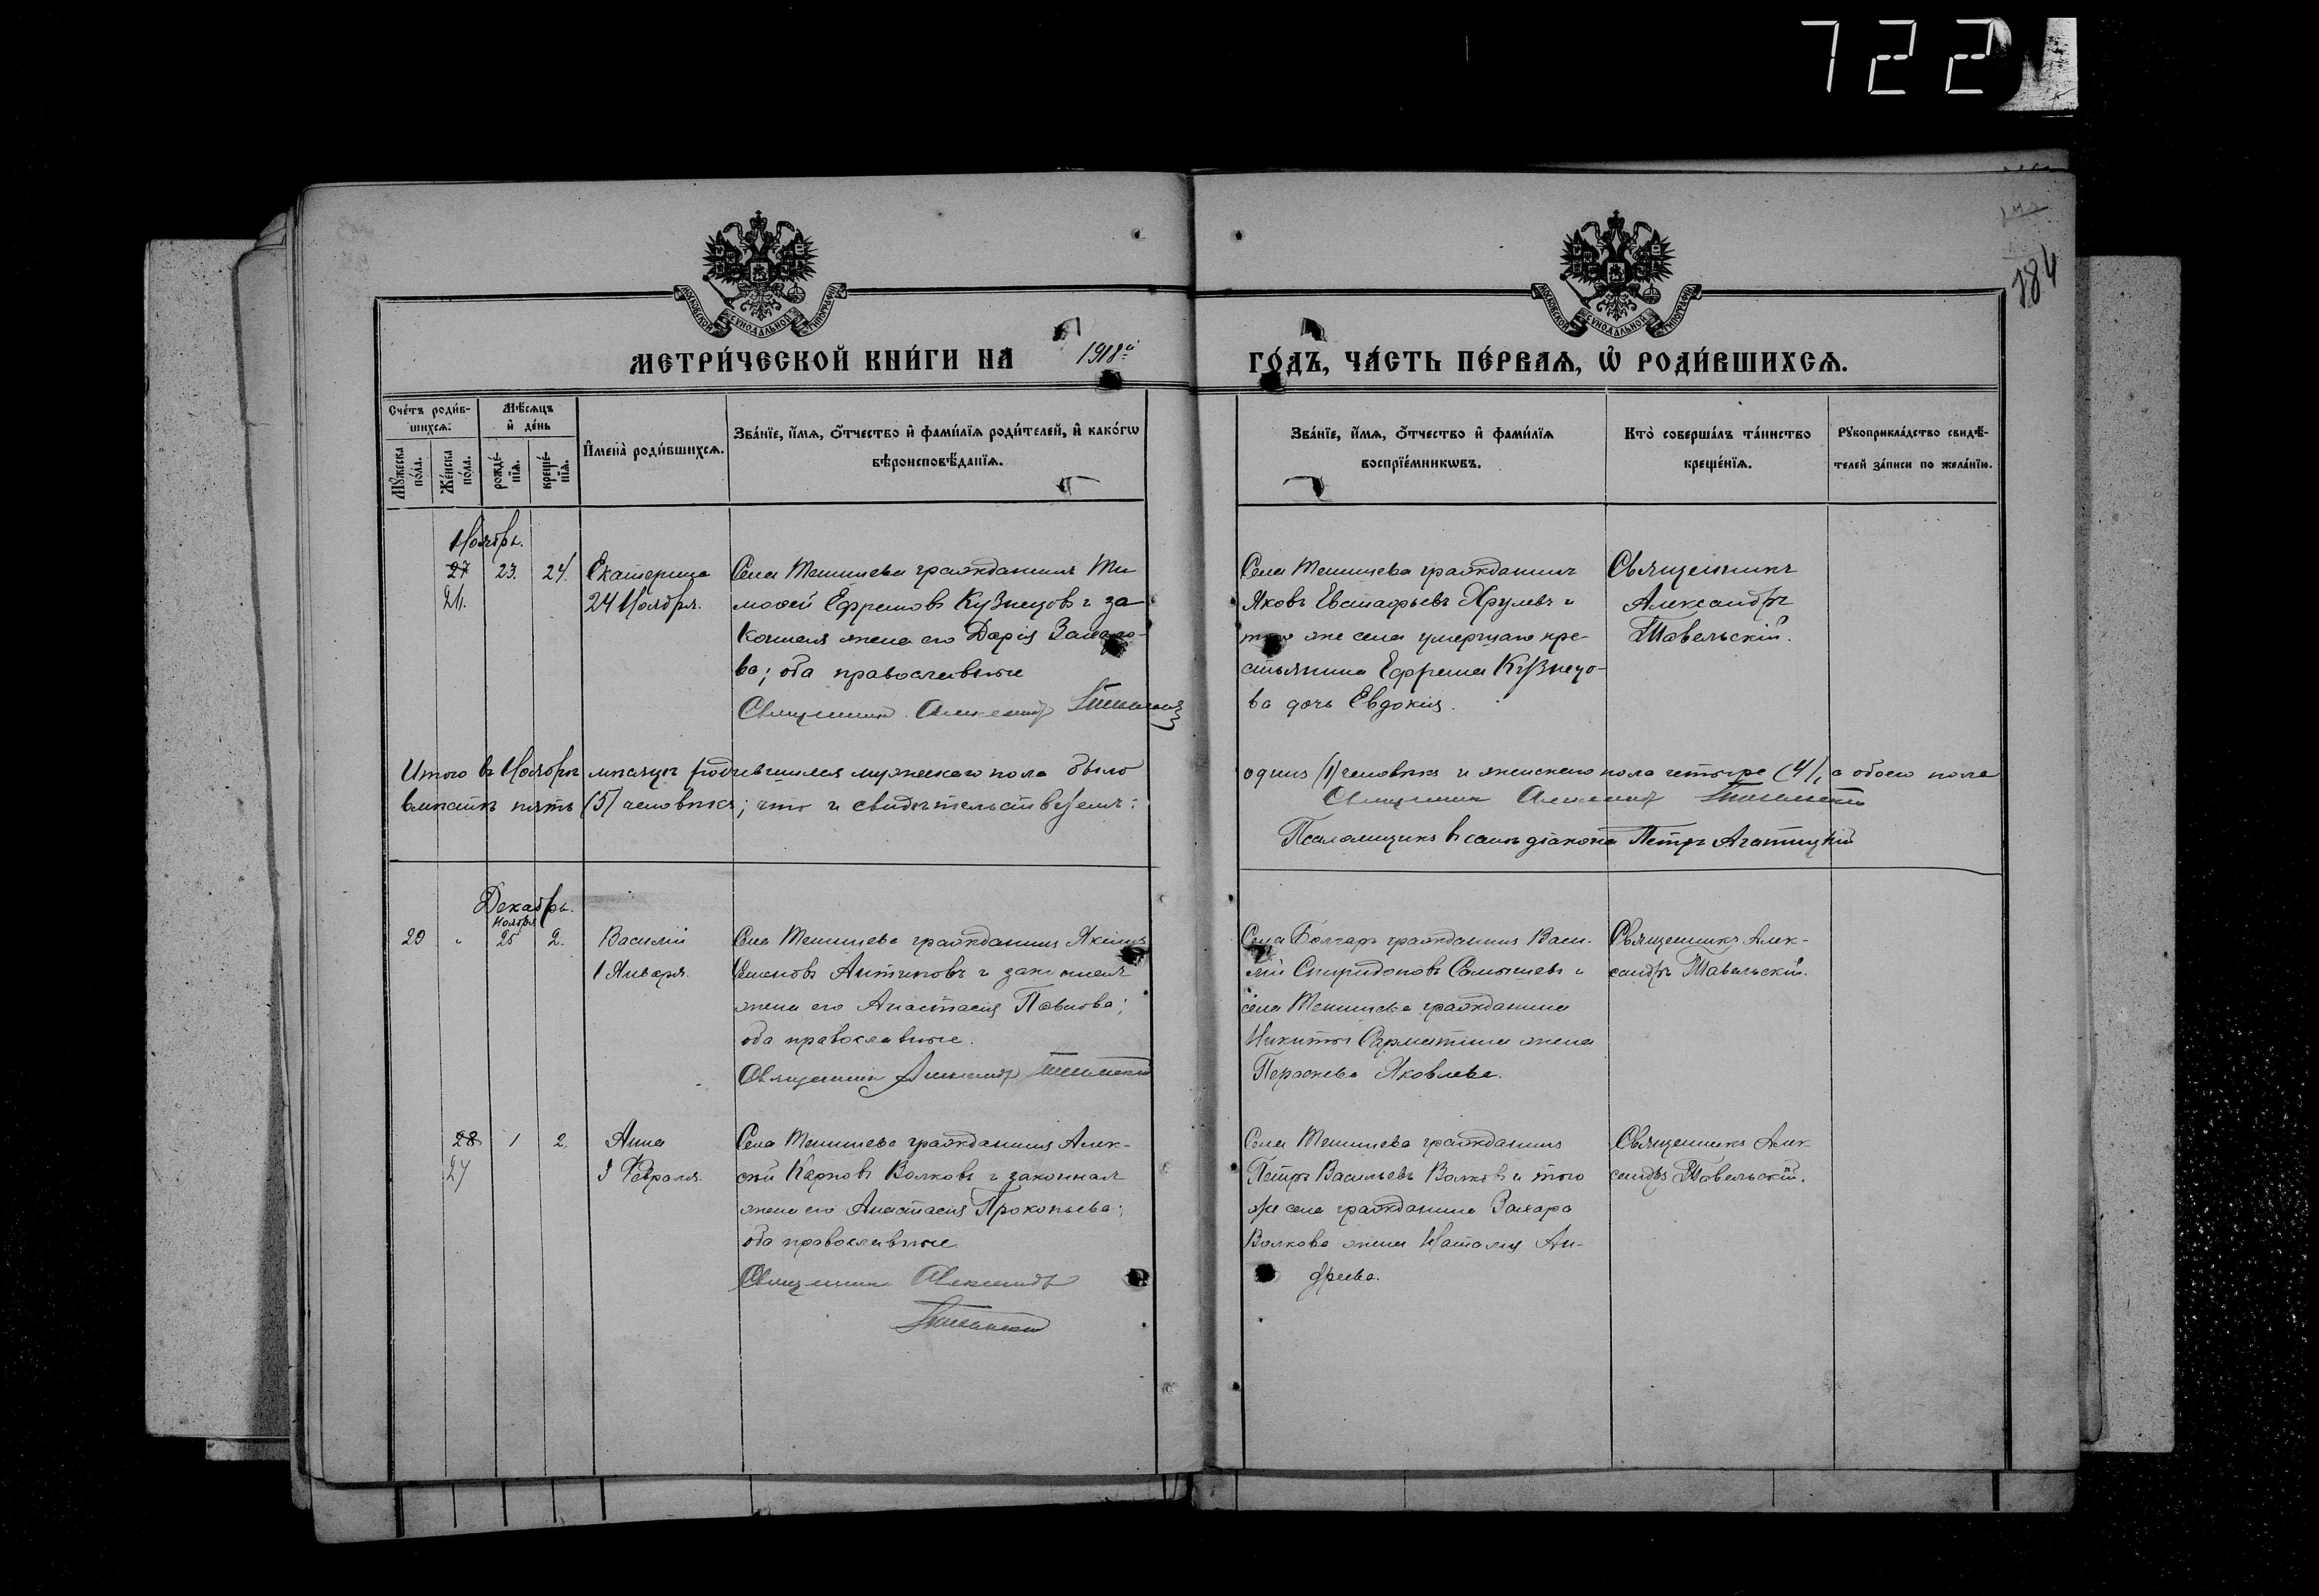 722
184
МОСКОВСКОЙ СѴНОДАЛЬНОЙ ТИПОГРАФІИ
МОСКОВСКОЙ СѴНОДАЛЬНОЙ ТИПОГРАФІИ
МЕТРИ́ЧЕСКОЙ КНИ́ГИ НА 1918й ГО́ДЪ, ЧА́СТЬ ПЕ́РВАѦ, Ѡ҆ РОДИ́ВШИХСѦ.
Сче́тъ роди́в-
шихсѧ:
Мꙋ́жеска по́ла.
Же́нска по́ла.
Мѣ́сѧцъ и҆ де́нь
рожде́-нїѧ.
креще́-нїѧ.
И҆мена̀ роди́вшихсѧ.
Зва́нїе, и҆́мѧ, ѻ҆́тчество и҆ фами́лїѧ роди́телей, и҆ како́гѡ
вѣроисповѣ́данїѧ.
Зва́нїе, и҆́мѧ, ѻ҆́тчество и҆ фами́лїѧ
воспрїе́мникѡвъ.
Кто̀ соверша́лъ та́инство
креще́нїѧ.
Рꙋкоприкла́дство свидѣ́-
телей за́писи по жела́нїю.
Ноябрь.
27 23. 24. Екатерина
26. 24 Ноября.
Села Тенишева гражданинъ Ти
мофей Ефремовъ Кузнецовъ и за
конная жена его Дарія
ва; оба православные
Священник Александр
Села Тенишева гражданинъ
Яковъ Евстафьевъ Хрулевъ и
того же села умершаго кре-
стьянина Ефрема Кузнецо-
ва дочь Евдокія.
Священникъ
Александръ
Тавельскій.
Итого въ Ноябрѣ мѣсяцѣ родившихся мужескаго пола было одинъ (1) человѣкъ и женскаго пола четыре (4), а обоего пола
вмѣстѣ пять (5) человѣкъ; что и свидѣтельствуемъ: Священник Александр Тавельский
Псаломщикъ въ санѣ діакона Петръ
Декабрь.
Ноября
29 " 25 2. Василій
1 Января.
Села Тенишева гражданинъ Якимъ
Семеновъ Антиповъ и законная
жена его Анастасія Павлова;
оба православные.
Священник Александр Тавельский
Села Болгаръ гражданинъ Васи-
лій Спиридоновъ и
села Тенишева гражданина
Никиты жена
Параскева Яковлева.
Священникъ Алек-
сандръ Тавельскій.
28 1 2. Анна
27 3 Февраля.
Села Тенишева гражданинъ Алек-
сѣй Карповъ Волковъ и законная
жена его Анастасія Прокопьева;
оба православные
Священник Александр
Тавельский
Села Тенишева гражданинъ
Петръ Васильевъ Волковъ и того
же села гражданина Захара
Волкова жена Наталія Ан-
дреева.
Священникъ Алек
сандръ Тавельскій.